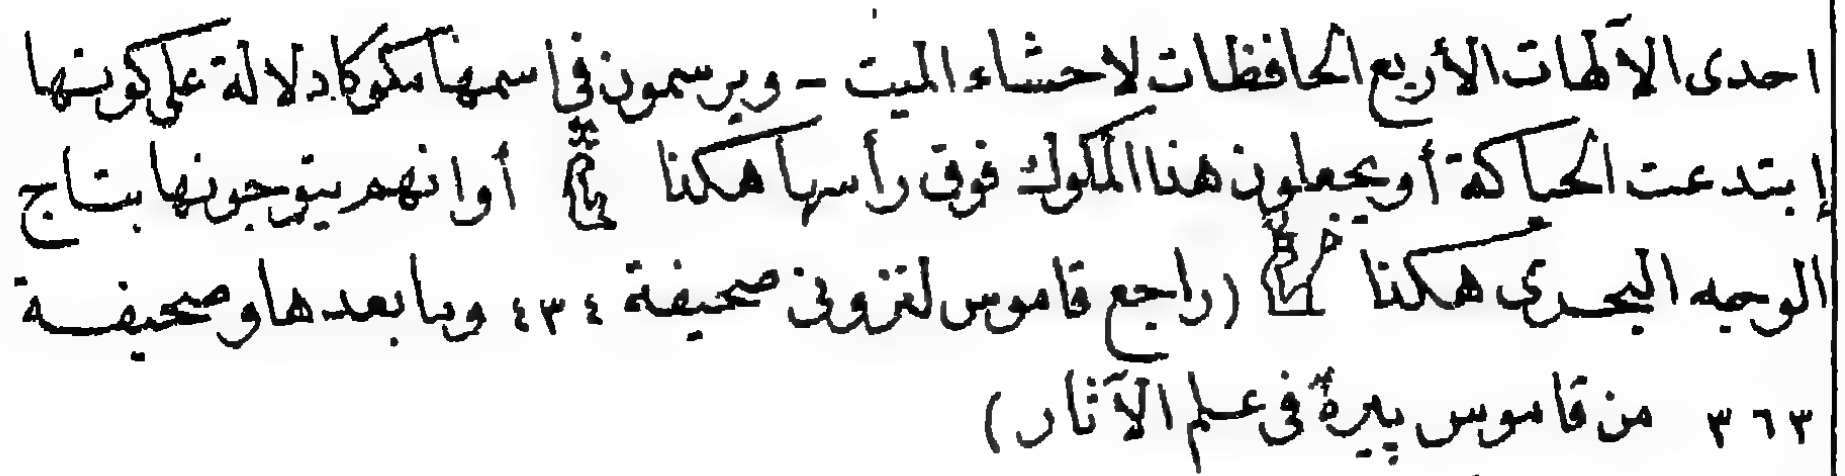 احدى الآلهات الأربع الحافظات لاحشاء الميت - ويرسمون في اسمها مكوكا دلالة على كونها
إبتدعت الحياكة أو يجعلون هذا المكوك فوق رأسها هكذا أو انهم يتوجونها بتاج
الوجه البحرى هكذا (راجع قاموس لنزونى صحيفة ٤٣٤ وما بعدها وصحيفة
٣٦٣ من قاموس پيره فى علم الآثار)